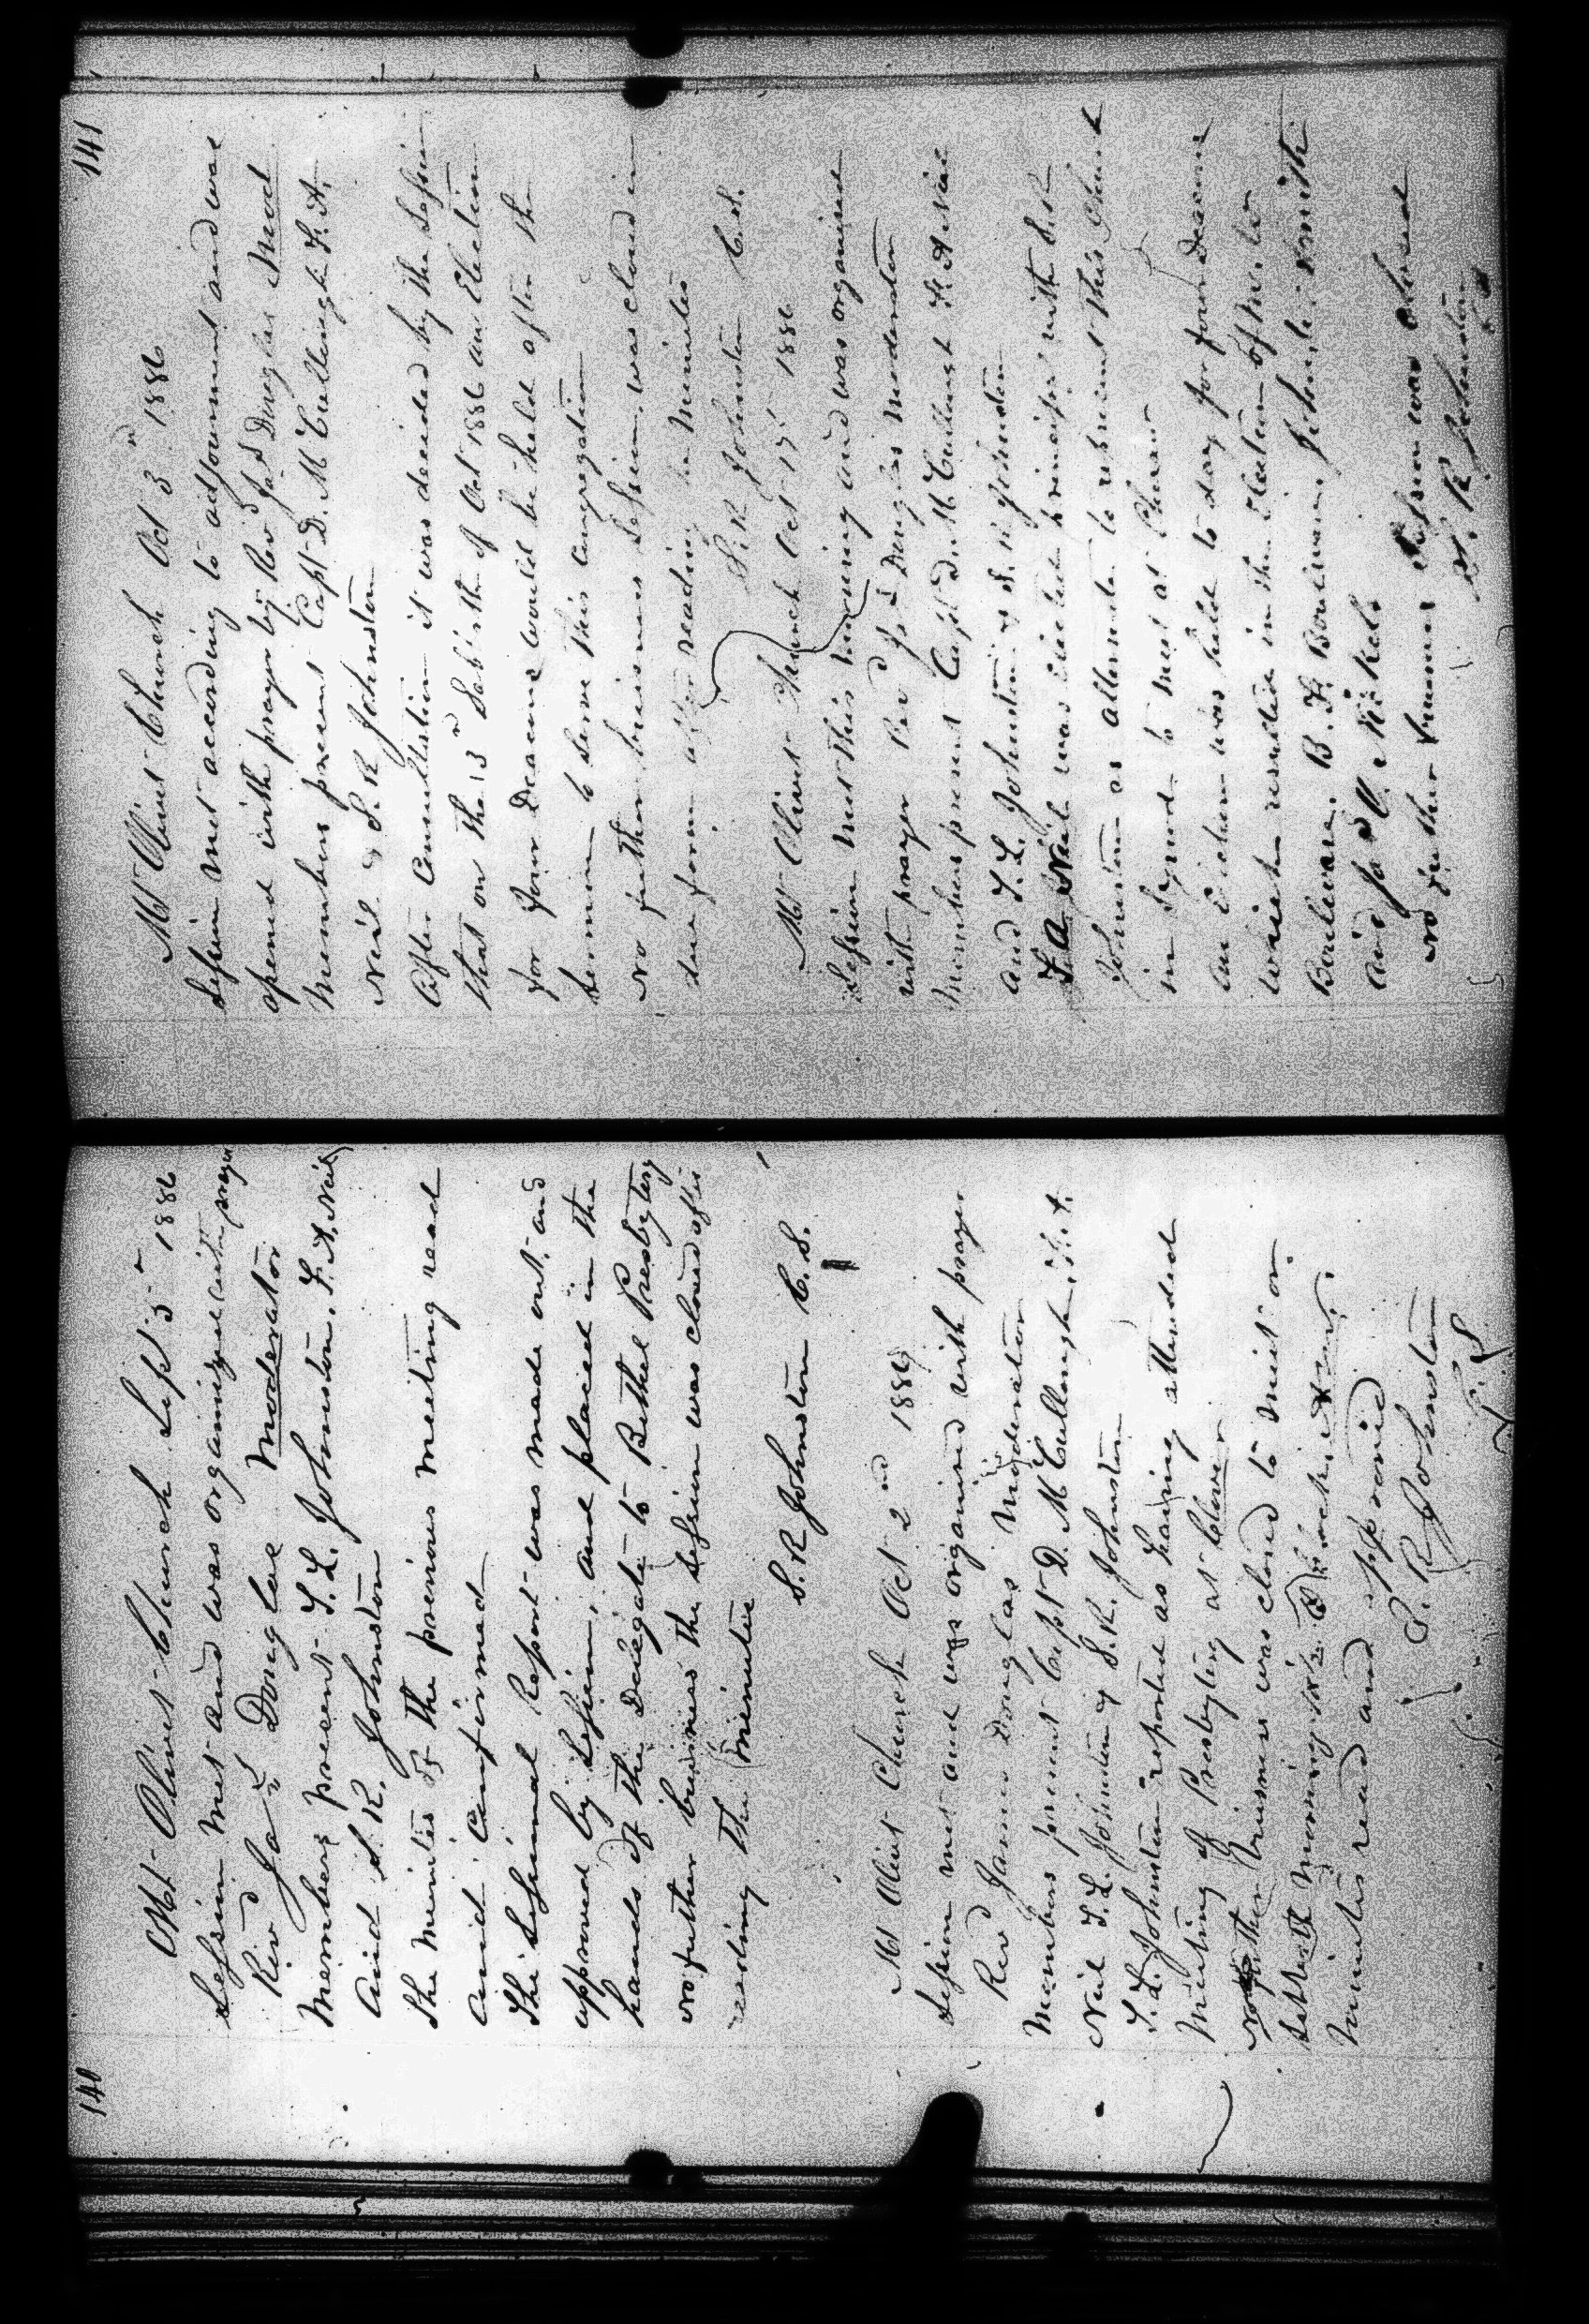 140
Mt Olivet Church Sept 5th 1886
Session met and was organized with prayer
Rev Jas Douglas Moderator
Members present S. L. Johnston. F. A. Neil
and S. R. Johnston
The minutes of the previous meeting read
and confirmed
The Sessional Report was made out and
approved by Session, and placed in the
hands of the Delegate to Bethel Presbytery
No futher business the Session was closed after
reading the minutes
S. R Johnston C. S.
Mt Olivet Church Oct 2nd 1886
Session met and was organised with prayer
Rev James Douglas Moderator
Members present Capt D. McCullough, F. A.
Neil S. L. Johnston & S. R. Johnston
S. L. Johnston reported as having attended
Meeting of Presbytery at Clover
No futher business was closed to meet on
Sabbath morning at O clock
Minutes read and approved
S. R Johnston
C. S
141
Mt Olivet Church Oct 3rd 1886
Session met according to adjournment and was
opened with prayer by Revd Jas Douglas Mod
Members present Capt D. McCullough F. A.
Neil & S. R Johnston
After Consultation it was decided by the Session
that on the 3rd Sabbath of Oct 1886 an Election
for four Deacons would be held after the
Sermon to serve this congregation
No futher business Session was closed in
due form after reading the Minutes
S. R Johnston C. S.
Mt Olivet Church Oct 17 1886
Session met this morning and was organised
with prayer Revd Jas Douglas Moderator
Members present Capt D. McCullough F. A Neil
and S. L. Johnston & S. R Johnston
F. A. Neil was elected principal with S. R
Johnston as alternate to represent this Church
in Synod to meet at Cheraw
An Election was held to day for four Deacons
which resulted in the Election of
Bouleware. B. F. Bouleware, Smith
and Jas Nickels
No futher business Session was closed
S. R Johnston
C S